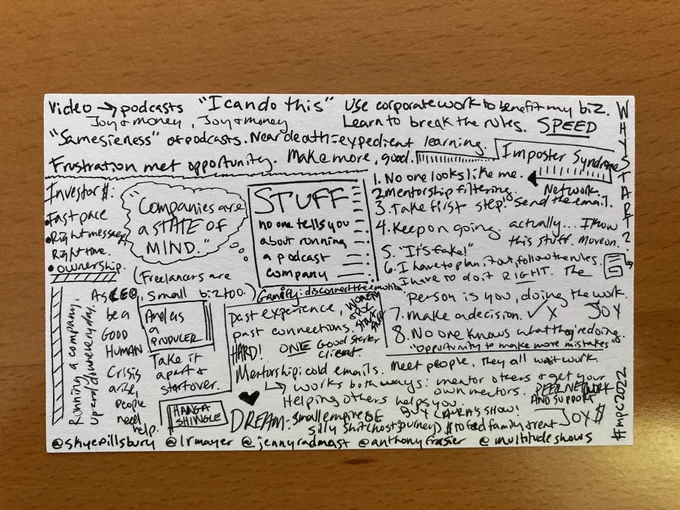 Video → podcasts "I can do this" Use corporate work to benefit my biz.
Joy & money, Joy & money Learn to break the rules. SPEED
"Samesieness" of podcasts. Near death = expedient learning.
Frustration met opportunity. Make more, good. Imposter Syndrome
WHY START?
Investor $:
• Fast pace
• Right message,
Right time.
• ownership.
"Companies are
a STATE OF
MIND."
(Freelancers are
small biz too.)
STUFF
no one tells you
about running
a podcast
company
1. No one looks like me.
2. mentorship filtering. Network.
3. Take first step: Send the email.
4. Keep on going. actually... I know
this stuff. Move on.
5. "It's fake!"
6. I have to plan it out, follow the rules.
I have to do it RIGHT. The
person is you, doing the work.
7. make a decision. ✓ X JOY
8. No one knows what they're doing.
"Opportunity to make more mistakes."
Running a company,
Up and down everyday.
As CEO,
be a
GOOD
HUMAN
Crisis
arise,
people
need
help.
And as
a
PRODUCER
Take it
apart &
start over.
HANG A
SHINGLE
Gamify: disconnect the emotion.
Past experience,
past connections.
HARD! ONE Good
client.
Mentorship: cold emails. Meet people, they all want work.
↳ works both ways: mentor others & get your
own mentors. PEER NETWORK
AND SUPPORT
Helping others helps you.
♥ DREAM: small empire OF BUY LAURA'S SHOW!
silly shit (host journey) $ to feed family & treat JOY $
#mpc2022
@skyepillsbury @lrmayer @jennyradmast @anthonyfrasier @multitudeshows